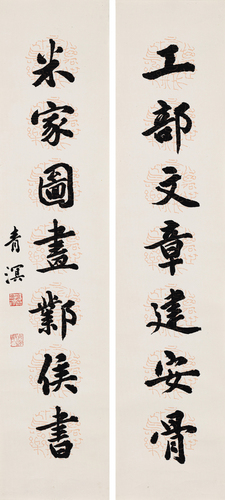 工部文章建安骨
米家圖畫鄴侯書
青溟